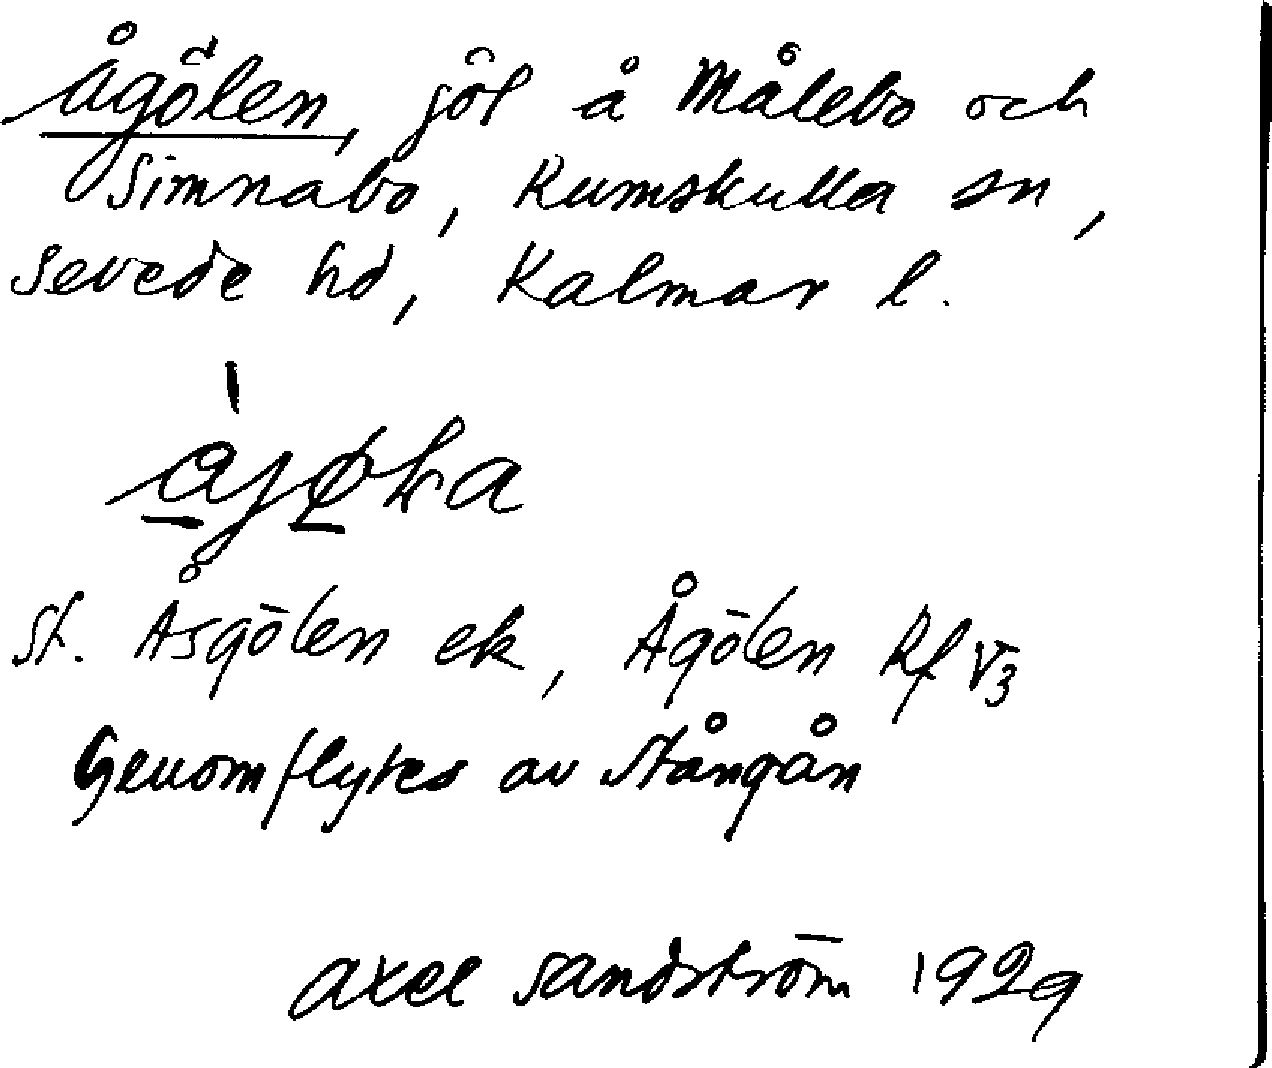 Ågölen, jöl å Målebo och
Simnabo, Rumskulla sn,
Sevede hd, Kalmar l.
St. Åsgölen ek, Ågölen Rf V3
Genomflytes av Stångån
Axel Sandström 1929